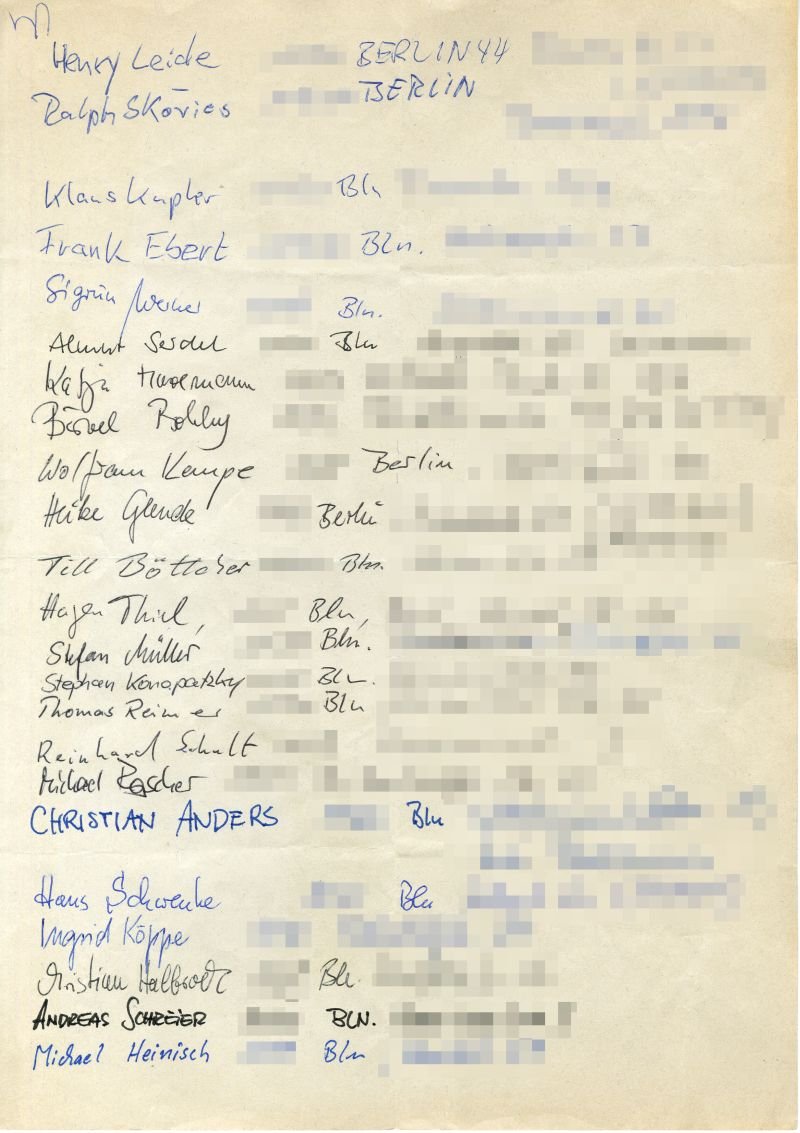 Henry Leide BERLIN 44
Ralph Skōries BERLIN
Klaus Kupler Bln
Frank Ebert Bln.
Sigrun Werner Bln.
Almut Seidel Bln
Katja Havemann
Bärbel Bohley
Wolfram Kempe Berlin
Heike Glende Berlin
Till Böttcher Bln.
Hagen Thiel, Bln,
Stefan Müller Bln.
Stephan Konopatzky Bln.
Thomas Reimer Bln
Reinhard Schult
Michael
CHRISTIAN ANDERS Bln
Hans Schwenke Bln
Ingrid Köppe
Christian Halbrock Bln.
ANDREAS SCHREIER BLN.
Michael Heinisch Bln